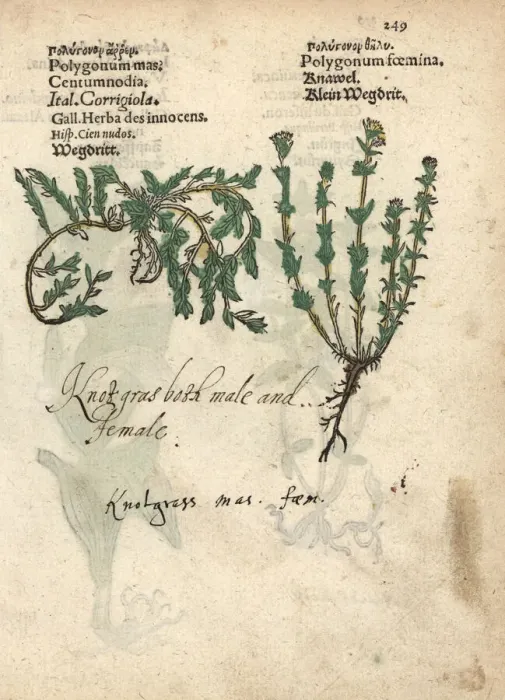 249
πολύγονον ἄρρεν.
Polygonum mas.
Centumnodia.
Ital. Corrigiola.
Gall. Herba des innocens.
Hisp. Cien nudos.
Wegdritt.
πολύγονον θῆλυ.
Polygonum fœmina.
Knawel.
Klein Wegdrit.
Knotgras both male and
female.
Knotgrass mas. fœm.